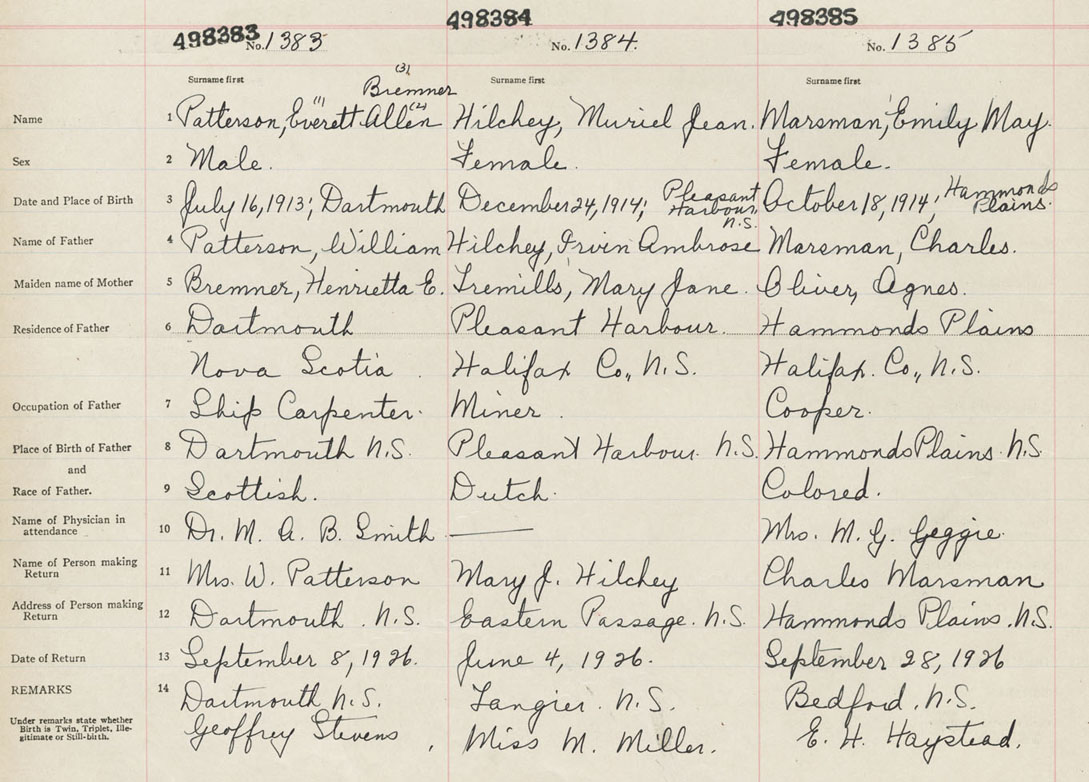 498383 No. 1383
498384 No. 1384.
498385 No. 1385
Surname first Surname first Surname first
(3) Bremner
Name 1 Patterson, Everett (1) Allen (2) Hilchey, Muriel Jean. Marsman, Emily May.
Sex 2 Male. Female. Female.
Date and Place of Birth 3 July 16, 1913; Dartmouth December 24, 1914; Pleasant Harbour, N.S. October 18, 1914; Hammonds Plains.
Name of Father 4 Patterson, William Hilchey, Irvin Ambrose Marsman, Charles.
Maiden name of Mother 5 Bremner, Henrietta E. Tremills, Mary Jane. Oliver, Agnes.
Residence of Father 6 Dartmouth Pleasant Harbour. Hammonds Plains
Nova Scotia. Halifax Co., N.S. Halifax. Co., N.S.
Occupation of Father 7 Ship Carpenter. Miner. Cooper.
Place of Birth of Father 8 Dartmouth N.S. Pleasant Harbour. N.S. Hammonds Plains. N.S.
and
Race of Father. 9 Scottish. Dutch. Colored.
Name of Physician in attendance 10 Dr. M. A. B. Smith — Mrs. M. G. Geggie.
Name of Person making Return 11 Mrs. W. Patterson Mary J. Hilchey Charles Marsman
Address of Person making Return 12 Dartmouth. N.S. Eastern Passage. N.S. Hammonds Plains. N.S.
Date of Return 13 September 8, 1926. June 4, 1926. September 28, 1926
REMARKS 14 Dartmouth, N.S. Tangier. N.S. Bedford. N.S.
Under remarks state whether Birth is Twin, Triplet, Ille-
gitimate or Still-birth.
Geoffrey Stevens, Miss M. Miller. E. H. Haystead.